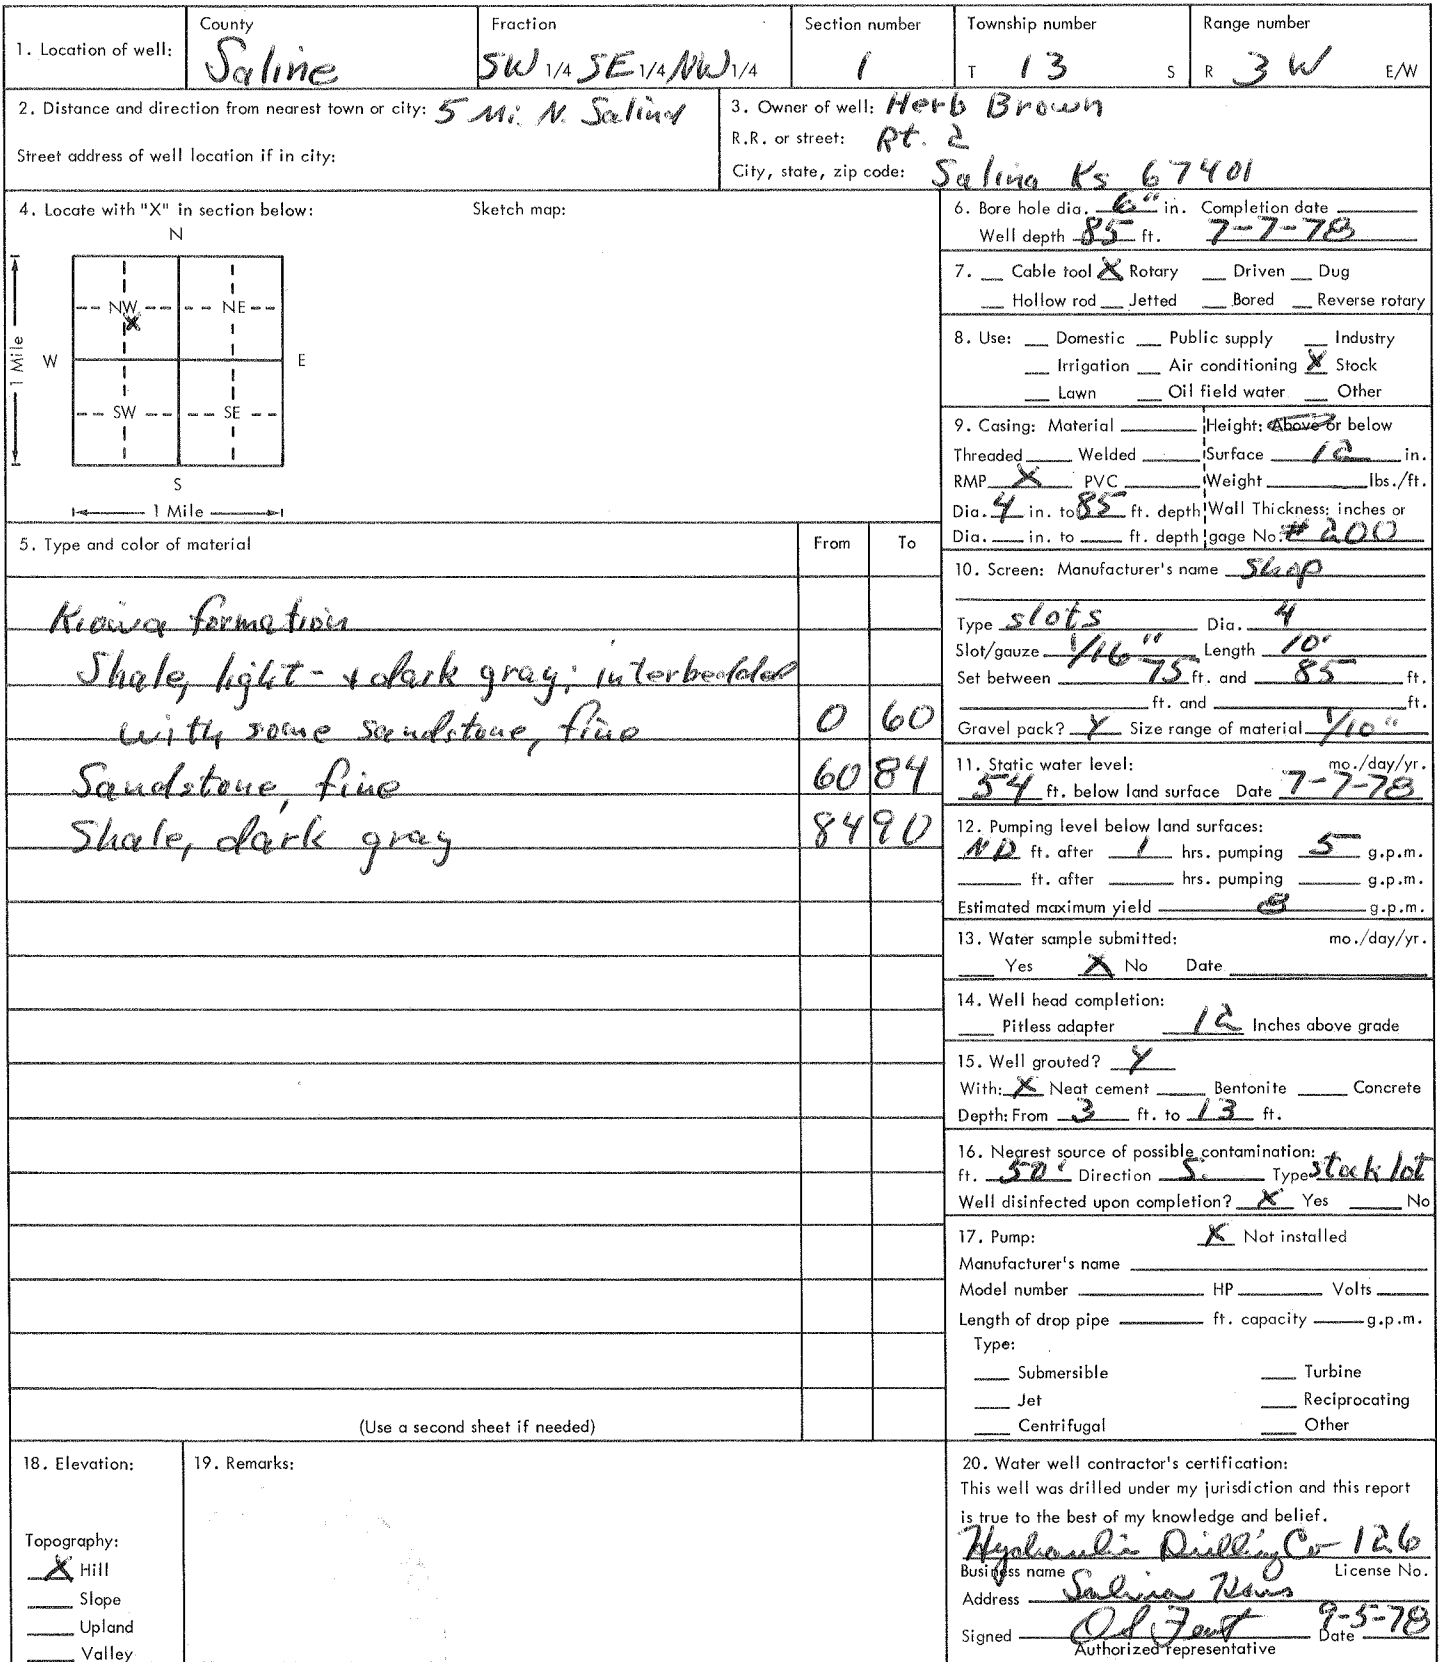 1. Location of well: County Saline Fraction SW 1/4 SE 1/4 NW 1/4 Section number 1 Township number T 13 S Range number R 3 W E/W
2. Distance and direction from nearest town or city: 5 Mi. N. Salina
Street address of well location if in city:
3. Owner of well: Herb Brown
R.R. or street: Rt. 2
City, state, zip code: Salina Ks 67401
4. Locate with "X" in section below: Sketch map:
N
NW NE
X
W E
1 Mile
SW SE
S
1 Mile
5. Type and color of material From To
Kiowa formation
Shale, light- & dark gray; interbedded
with some sandstone, fine 0 60
Sandstone, fine 60 84
Shale, dark gray 84 90
(Use a second sheet if needed)
6. Bore hole dia. 6" in. Completion date
Well depth 85 ft. 7-7-78
7. Cable tool X Rotary Driven Dug
Hollow rod Jetted Bored Reverse rotary
8. Use: Domestic Public supply Industry
Irrigation Air conditioning X Stock
Lawn Oil field water Other
9. Casing: Material Height: Above or below
Threaded Welded Surface 12 in.
RMP X PVC Weight lbs./ft.
Dia. 4 in. to 85 ft. depth Wall Thickness: inches or
Dia. in. to ft. depth gage No. # 200
10. Screen: Manufacturer's name Shop
Type slots Dia. 4
Slot/gauze 1/16" Length 10'
Set between 75 ft. and 85 ft.
ft. and ft.
Gravel pack? Y Size range of material 1/10"
11. Static water level: mo./day/yr.
54 ft. below land surface Date 7-7-78
12. Pumping level below land surfaces:
ND ft. after 1 hrs. pumping 5 g.p.m.
ft. after hrs. pumping g.p.m.
Estimated maximum yield 8 g.p.m.
13. Water sample submitted: mo./day/yr.
Yes X No Date
14. Well head completion:
Pitless adapter 12 Inches above grade
15. Well grouted? Y
With: X Neat cement Bentonite Concrete
Depth: From 3 ft. to 13 ft.
16. Nearest source of possible contamination:
ft. 50' Direction S. Type stock lot
Well disinfected upon completion? X Yes No
17. Pump: X Not installed
Manufacturer's name
Model number HP Volts
Length of drop pipe ft. capacity g.p.m.
Type:
Submersible Turbine
Jet Reciprocating
Centrifugal Other
18. Elevation:
Topography:
X Hill
Slope
Upland
Valley
19. Remarks:
20. Water well contractor's certification:
This well was drilled under my jurisdiction and this report
is true to the best of my knowledge and belief.
Hydraulic Drilling Co 126
Business name License No.
Address Salina Kans
Signed Date 9-5-78
Authorized representative